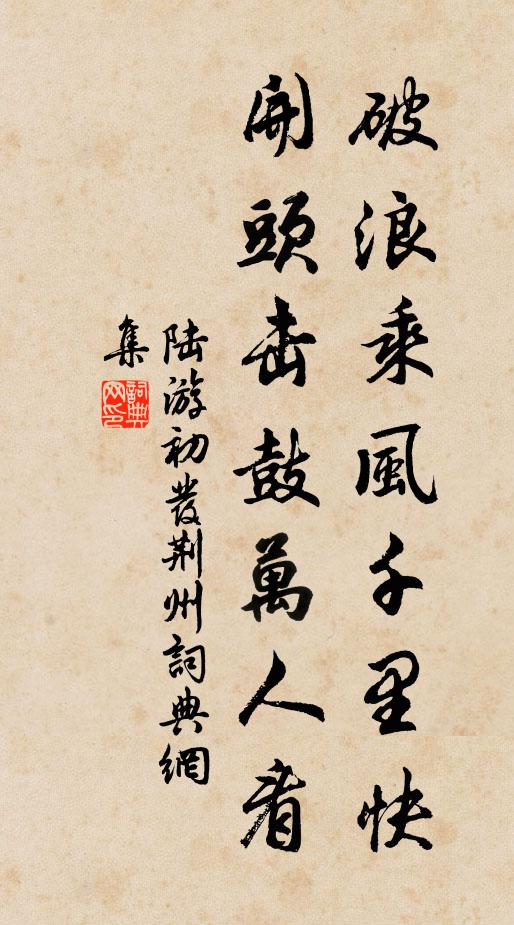 破浪乘風千里快
開頭击鼓萬人看
陆游初發荆州詞典網
集
詞典網印